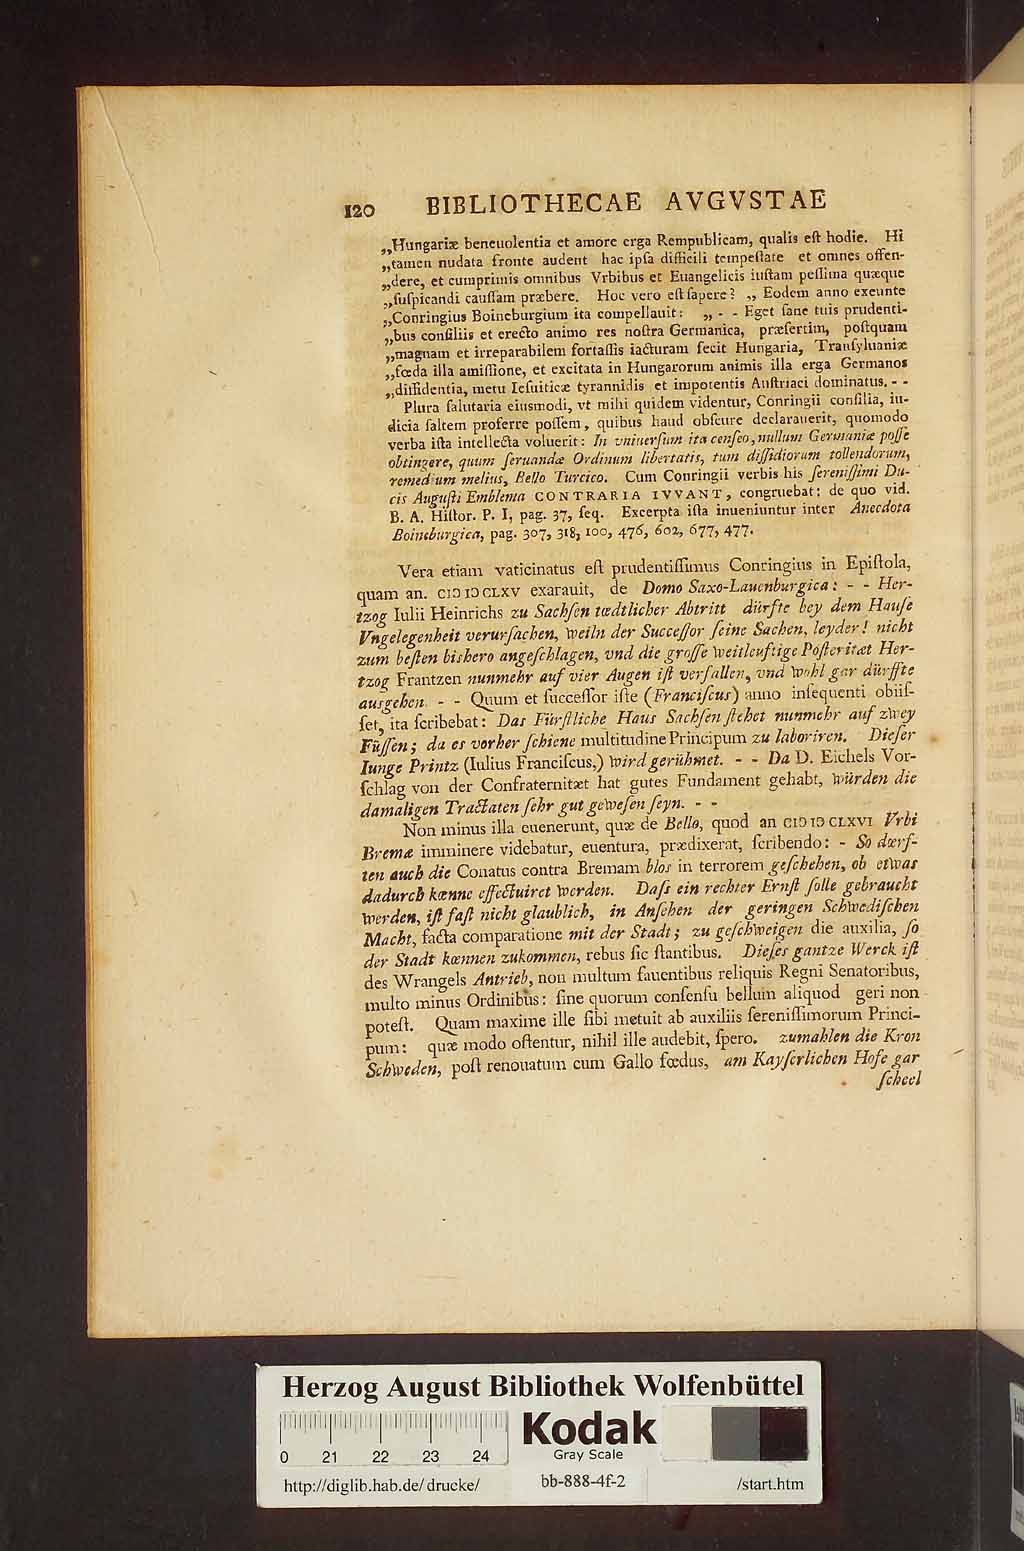 120 BIBLIOTHECAE AVGVSTAE
„Hungariæ beneuolentia et amore erga Rempublicam, qualis eſt hodie. Hi
„tamen nudata fronte audent hac ipſa difficili tempeſtate et omnes offen-
„dere, et cumprimis omnibus Vrbibus et Euangelicis iuſtam peſſima quæque
„ſuſpicandi cauſſam præbere. Hoc vero eſt ſapere? „ Eodem anno exeunte
„Conringius Boineburgium ita compellauit: „ - - Eget ſane tuis prudenti-
„bus conſiliis et erecto animo res noſtra Germanica, præſertim, poſtquam
„magnam et irreparabilem fortaſſis iacturam fecit Hungaria, Tranſyluaniæ
„fœda illa amiſſione, et excitata in Hungarorum animis illa erga Germanos
„diffidentia, metu Ieſuiticæ tyrannidis et impotentis Auſtriaci dominatus. - -
Plura ſalutaria eiusmodi, vt mihi quidem videntur, Conringii conſilia, iu-
dicia ſaltem proferre poſſem, quibus haud obſcure declarauerit, quomodo
verba iſta intellecta voluerit: In vniuerſum ita cenſeo, nullum Germaniæ poſſe
obtingere, quum ſeruandæ Ordinum libertatis, tum diſſidiorum tollendorum,
remedium melius, Bello Turcico. Cum Conringii verbis his ſereniſſimi Du-
cis Auguſti Emblema CONTRARIA IVVANT, congruebat: de quo vid.
B. A. Hiſtor. P. I, pag. 37, ſeq. Excerpta iſta inueniuntur inter Anecdota
Boineburgica, pag. 307, 318, 100, 476, 602, 677, 477.
Vera etiam vaticinatus eſt prudentiſſimus Conringius in Epiſtola,
quam an. CIↃIↃCLXV exarauit, de Domo Saxo-Lauenburgica: - - Her-
tzog Iulii Heinrichs zu Sachſen tœdtlicher Abtritt dürfte bey dem Hauſe
Vngelegenheit verurſachen, weiln der Succeſſor ſeine Sachen, leyder! nicht
zum beſten bishero angeſchlagen, vnd die groſſe weitleuftige Poſteritæt Her-
tzog Frantzen nunmehr auf vier Augen iſt verfallen, vnd wohl gar dürffte
ausgehen. - - Quum et ſucceſſor iſte (Franciſcus) anno inſequenti obiiſ-
ſet, ita ſcribebat: Das Fürſtliche Haus Sachſen ſtehet nunmehr auf zwey
Füſſen; da es vorher ſchiene multitudine Principum zu laboriren. Dieſer
Iunge Printz (Iulius Franciſcus,) wird gerühmet. - - Da D. Eichels Vor-
ſchlag von der Confraternitæt hat gutes Fundament gehabt, würden die
damaligen Tractaten ſehr gut geweſen ſeyn. - -
Non minus illa euenerunt, quæ de Bello, quod an CIↃIↃCLXVI Vrbi
Bremæ imminere videbatur, euentura, prædixerat, ſcribendo: - So dœrf-
ten auch die Conatus contra Bremam blos in terrorem geſchehen, ob etwas
dadurch kœnne effectuiret werden. Daſs ein rechter Ernſt ſolle gebraucht
werden, iſt faſt nicht glaublich, in Anſehen der geringen Schwediſchen
Macht, facta comparatione mit der Stadt; zu geſchweigen die auxilia, ſo
der Stadt kœnnen zukommen, rebus ſic ſtantibus. Dieſes gantze Werck iſt
des Wrangels Antrieb, non multum fauentibus reliquis Regni Senatoribus,
multo minus Ordinibus: ſine quorum conſenſu bellum aliquod geri non
poteſt. Quam maxime ille ſibi metuit ab auxiliis ſereniſſimorum Princi-
pum: quæ modo oſtentur, nihil ille audebit, ſpero. zumahlen die Kron
Schweden, poſt renouatum cum Gallo fœdus, am Kayſerlichen Hofe gar
ſcheel
Herzog August Bibliothek Wolfenbüttel
0 21 22 23 24
Kodak
Gray Scale
http://diglib.hab.de/drucke/ bb-888-4f-2 /start.htm